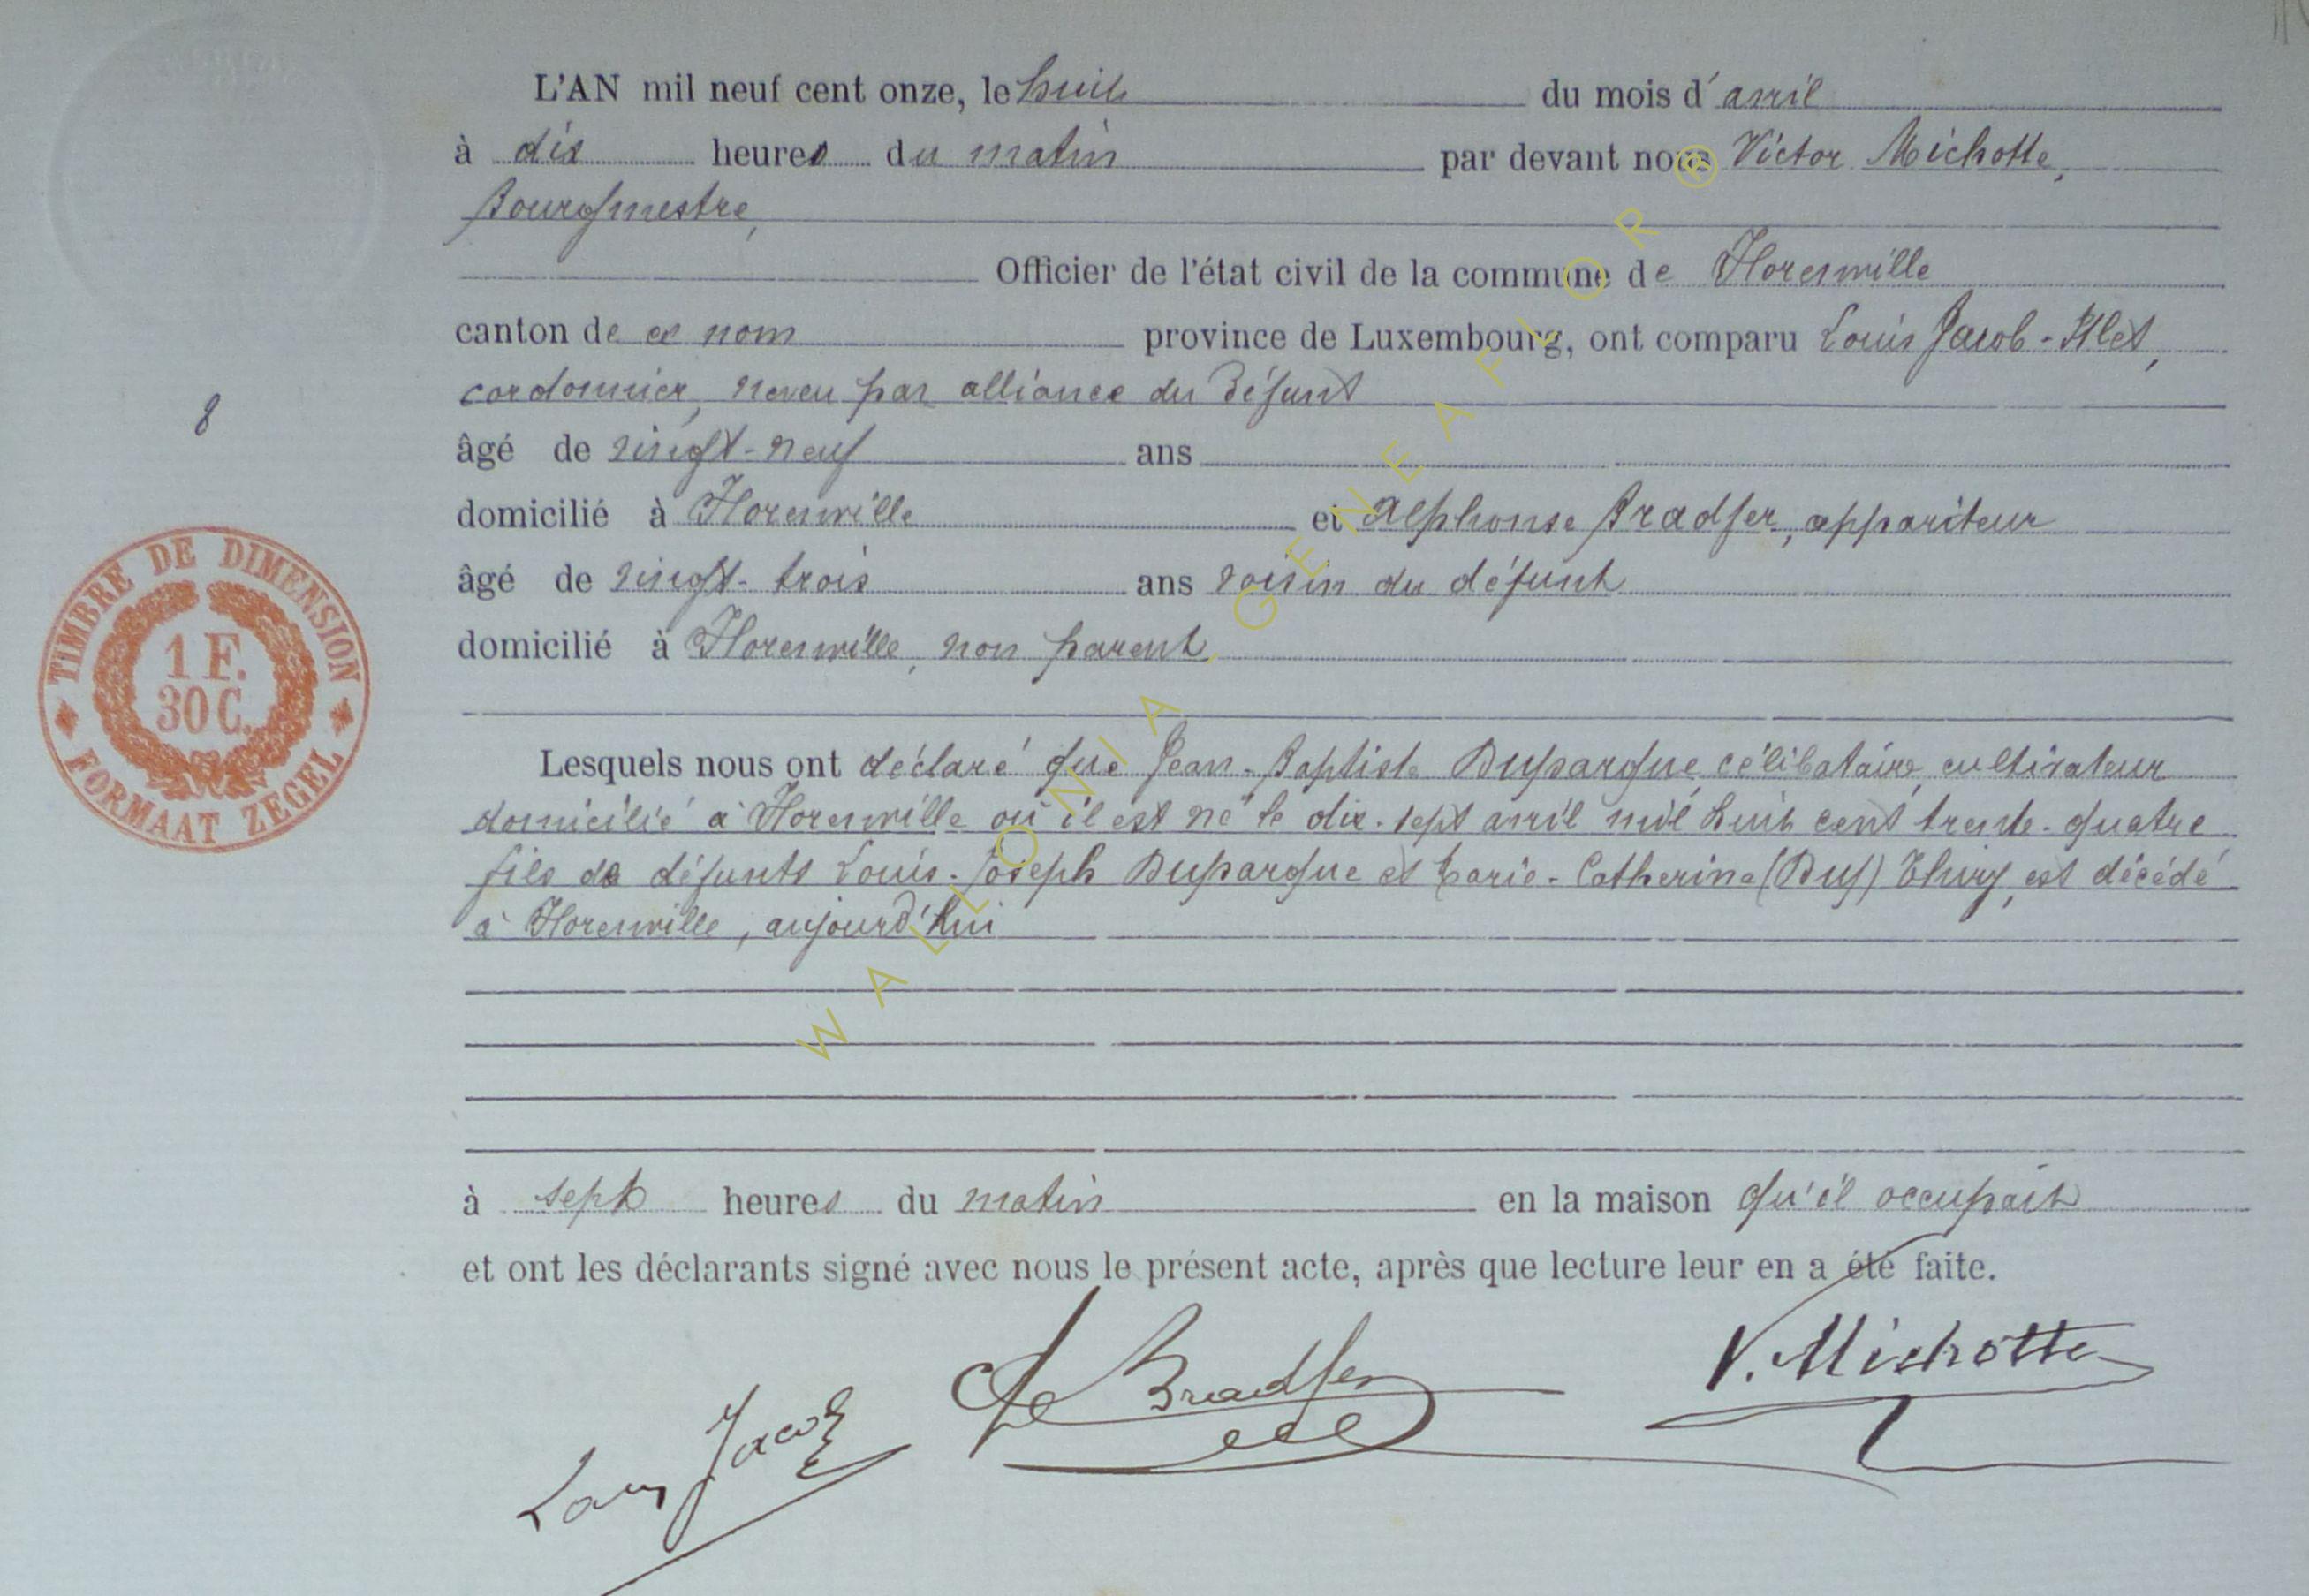 L'AN mil neuf cent onze, le huit du mois d'avril
à dix heures du matin par devant nous Victor Michotte,
Bourgmestre,
Officier de l'état civil de la commune de Florenville
canton de ce nom province de Luxembourg, ont comparu Louis Jacob-
cordonnier, neveu par alliance du défunt
8
âgé de vingt-neuf ans
domicilié à Florenville et Alphonse Bradfer, appariteur
âgé de vingt-trois ans voisin du défunt
domicilié à Florenville, non parent
TIMBRE DE DIMENSION
1 F.
30 C.
FORMAAT ZEGEL
Lesquels nous ont déclaré que Jean-Baptiste Duparque, célibataire, cultivateur
domicilié à Florenville où il est né le dix-sept avril mil huit cent trente-quatre
fils de défunts Louis-Joseph Duparque et Marie-Catherine (Duf) Thiry, est décédé
à Florenville, aujourd'hui
à sept heures du matin en la maison qu'il occupait
et ont les déclarants signé avec nous le présent acte, après que lecture leur en a été faite.
V. Michotte
Bradfer
Louis Jacob
WALLONIA GENEAFLOR ®